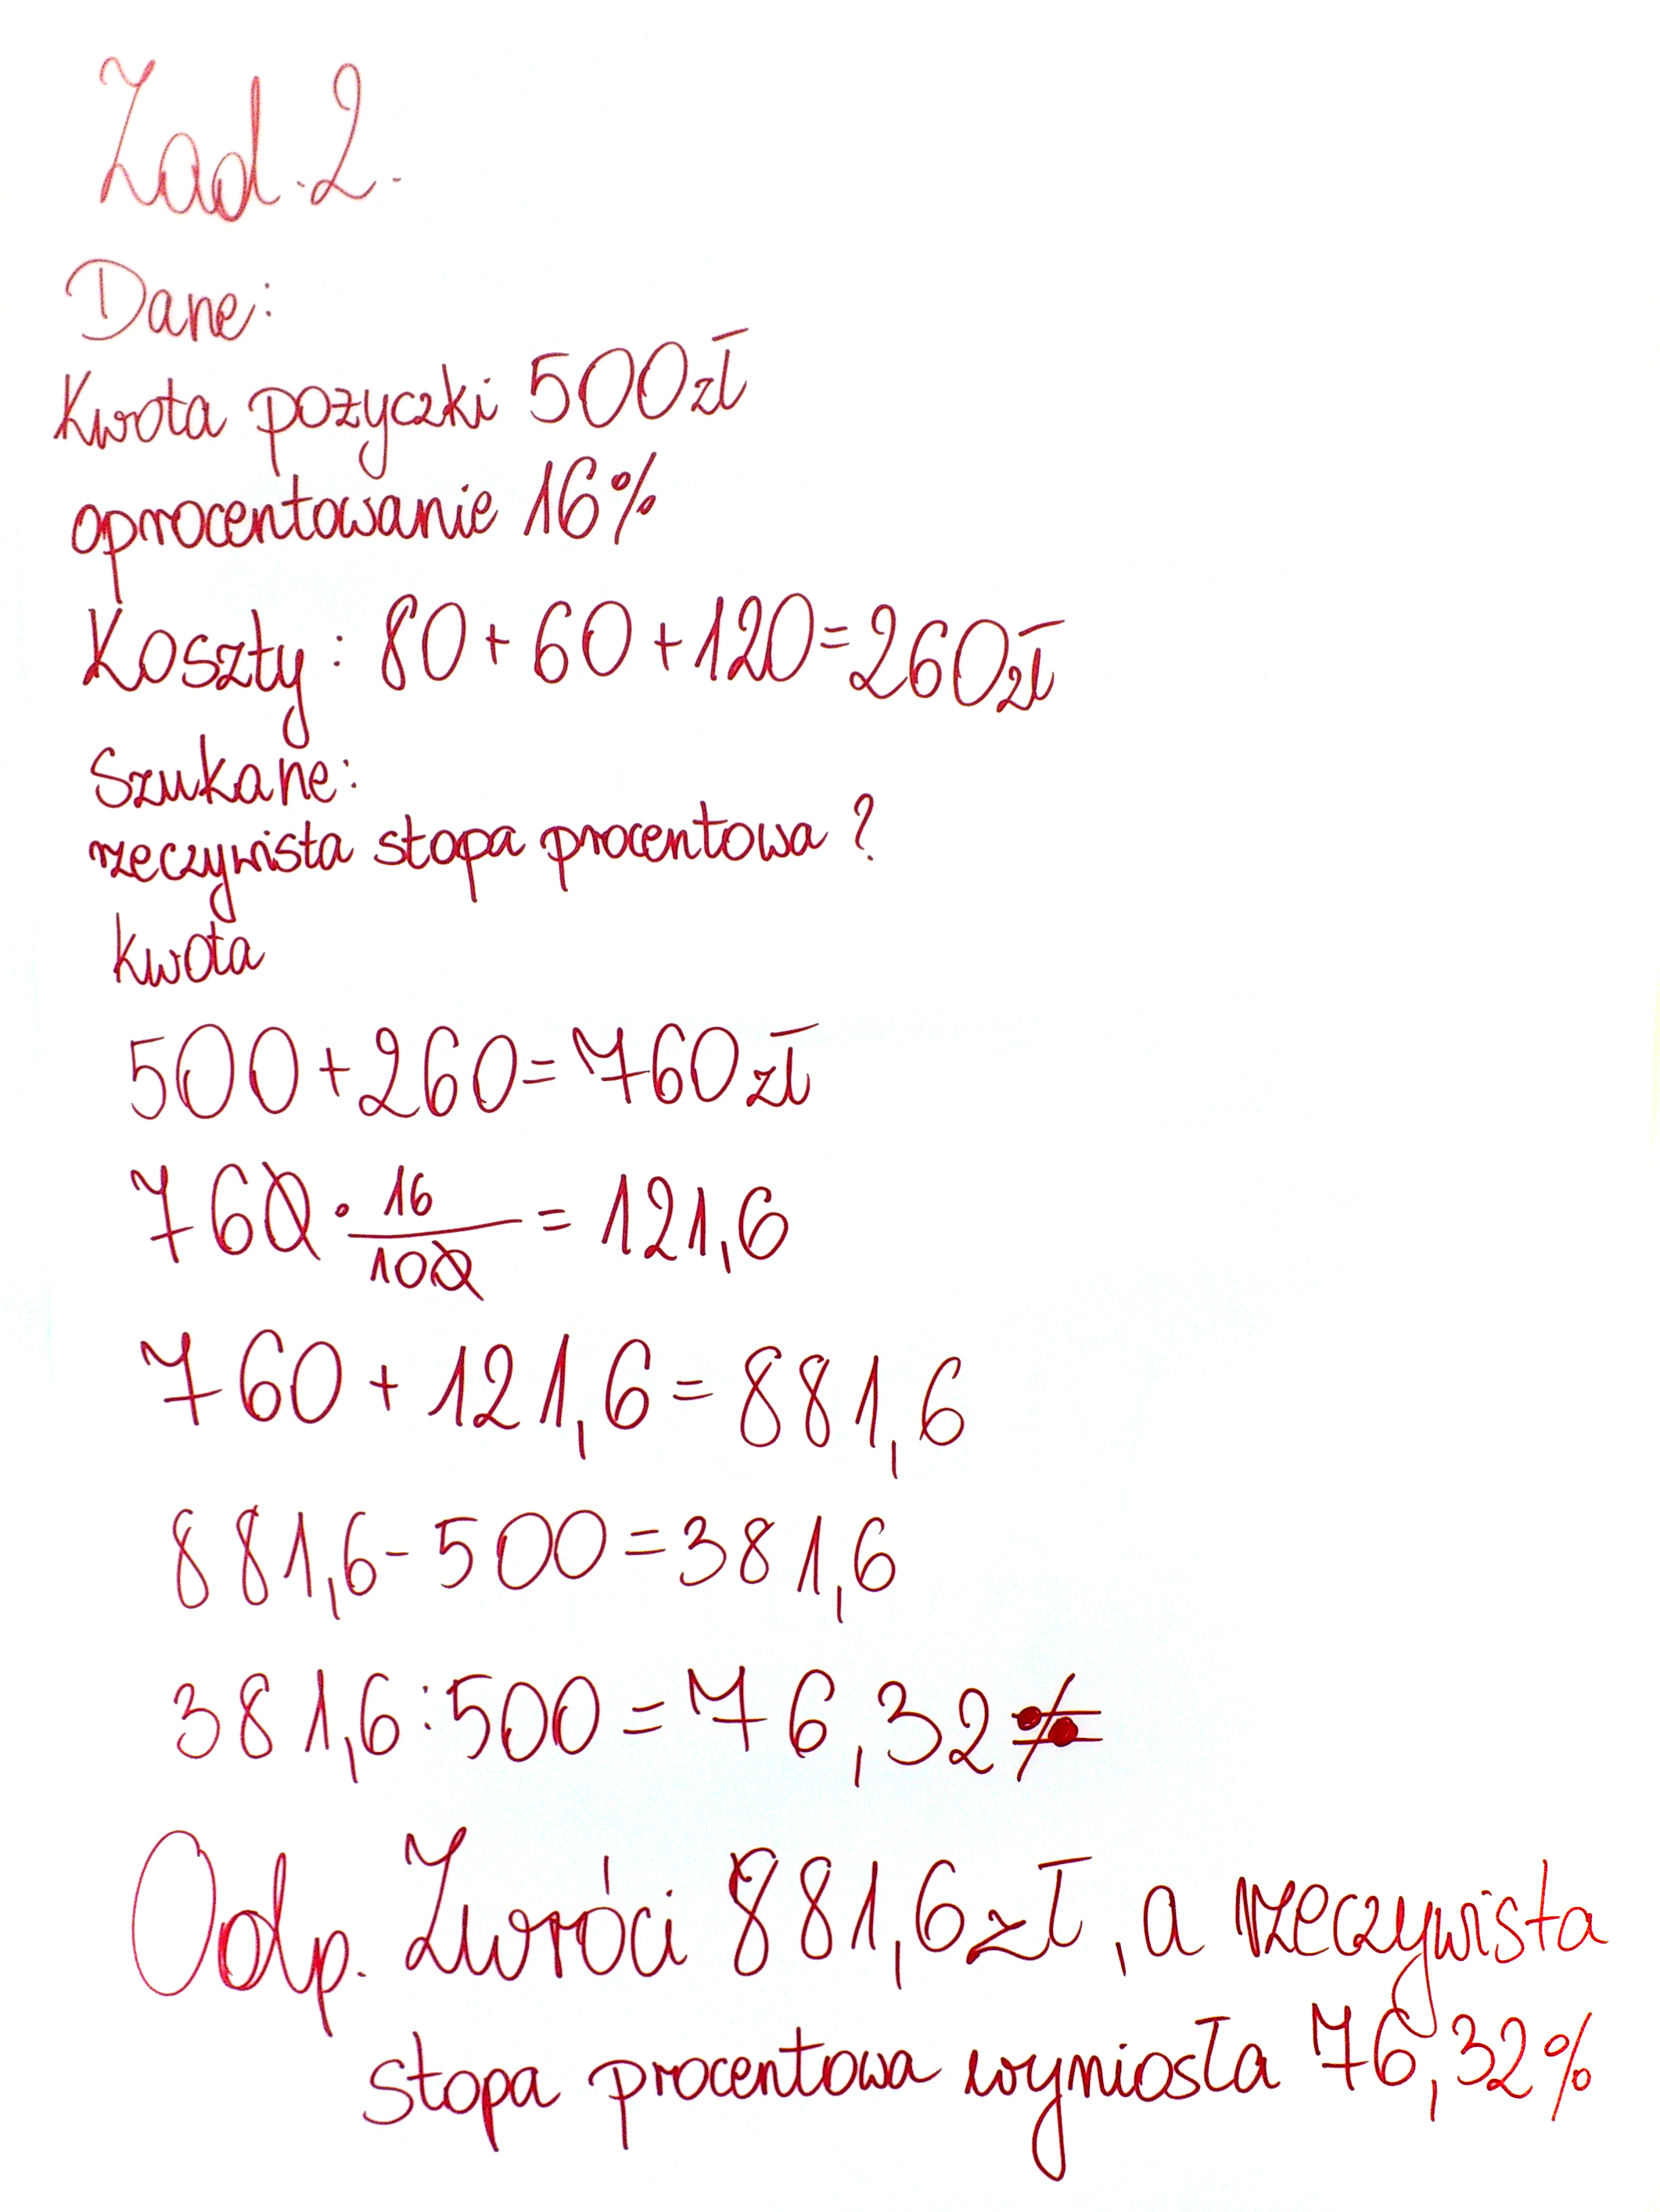 Zad. 2.
Dane:
Kwota pożyczki 500zł
oprocentowanie 16%
Koszty: 80+60+120=260zł
Szukane:
rzeczywista stopa procentowa?
kwota
500+260=760zł
760 · 16/100 = 121,6
760+121,6=881,6
881,6-500=381,6
381,6:500=76,32%
Odp. Zwróci 881,6zł, a rzeczywista
stopa procentowa wyniosła 76,32%